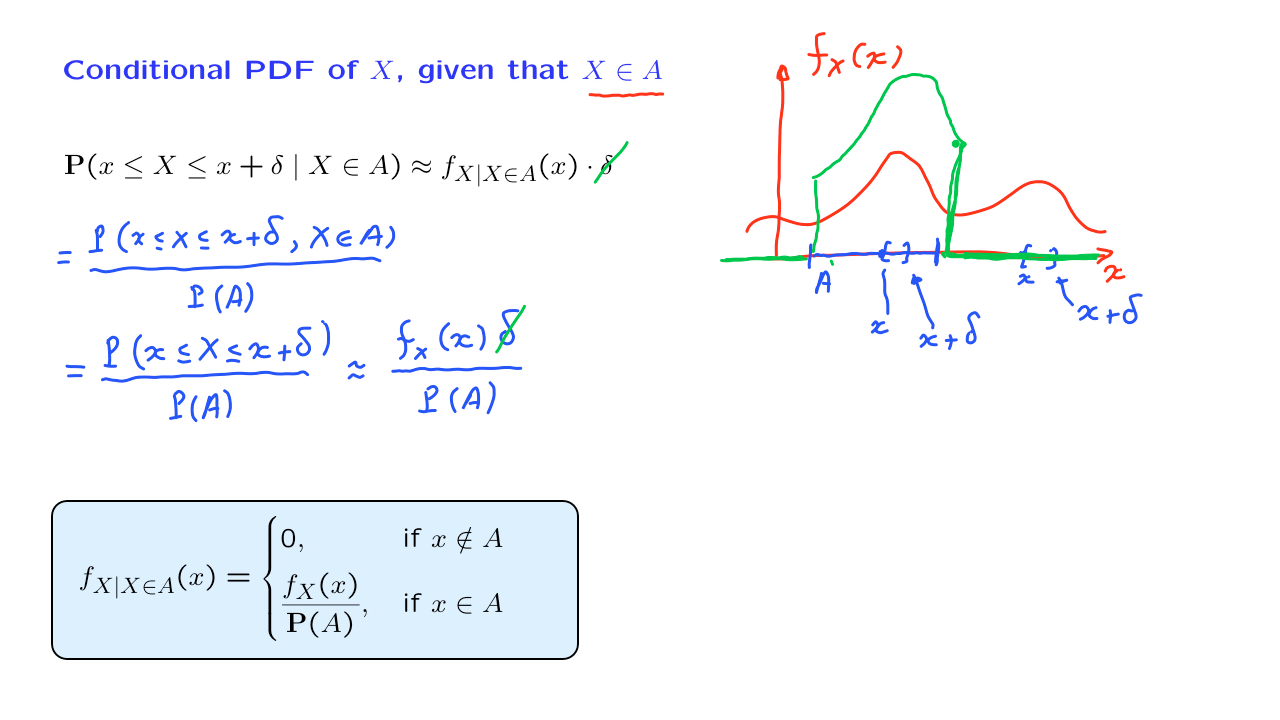 Conditional PDF of X, given that X ∈ A
P(x ≤ X ≤ x + δ | X ∈ A) ≈ f_{X|X∈A}(x) · δ
= P(x ≤ X ≤ x+δ, X ∈ A) / P(A)
= P(x ≤ X ≤ x+δ) / P(A) ≈ f_X(x) δ / P(A)
f_{X|X∈A}(x) = { 0, if x ∉ A
f_X(x) / P(A), if x ∈ A
f_X(x)
A
x
x+δ
x
x+δ
x